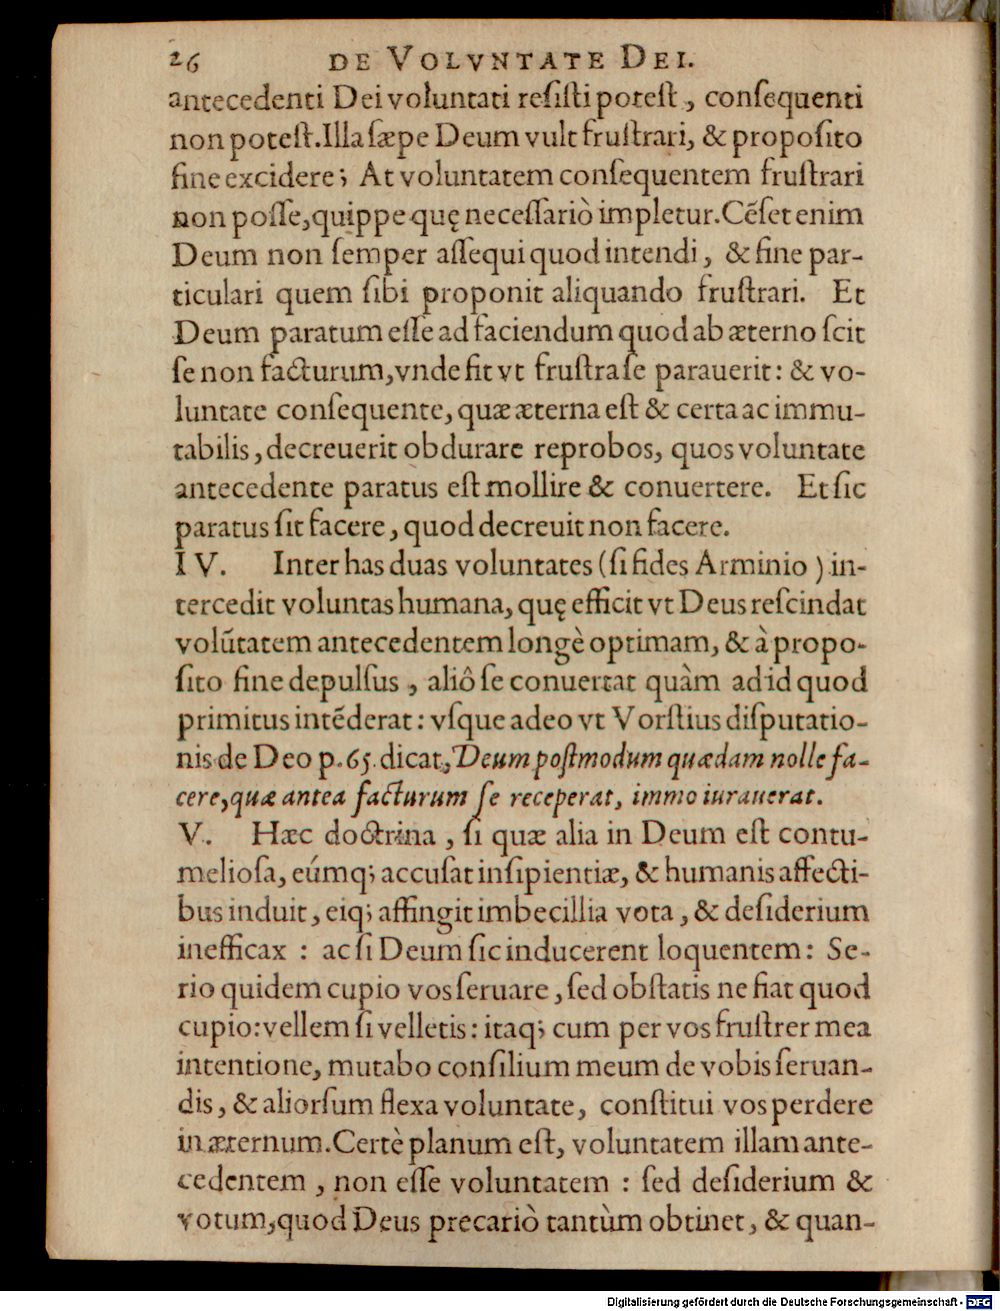 26 DE VOLVNTATE DEI.
antecedenti Dei voluntati reſiſti poteſt, conſequenti
non poteſt. Illa ſæpe Deum vult fruſtrari, & propoſito
fine excidere; At voluntatem conſequentem fruſtrari
non poſſe, quippe quę neceſſariò impletur. Cẽſet enim
Deum non ſemper aſſequi quod intendi, & fine par-
ticulari quem ſibi proponit aliquando fruſtrari. Et
Deum paratum eſſe ad faciendum quod ab æterno ſcit
ſe non facturum, vnde fit vt fruſtra ſe parauerit: & vo-
luntate conſequente, quæ æterna eſt & certa ac immu-
tabilis, decreuerit obdurare reprobos, quos voluntate
antecedente paratus eſt mollire & conuertere. Et ſic
paratus ſit facere, quod decreuit non facere.
IV. Inter has duas voluntates (ſi fides Arminio) in-
tercedit voluntas humana, quę efficit vt Deus reſcindat
volũtatem antecedentem longè optimam, & à propo-
ſito fine depulſus, aliô ſe conuertat quàm ad id quod
primitus intẽderat: vſque adeo vt Vorſtius diſputatio-
nis de Deo p. 65. dicat, Deum poſtmodum quædam nolle fa-
cere, quæ antea facturum ſe receperat, immo iurauerat.
V. Hæc doctrina, ſi quæ alia in Deum eſt contu-
melioſa, eúmq; accuſat inſipientiæ, & humanis affecti-
bus induit, eiq; affingit imbecillia vota, & deſiderium
inefficax: ac ſi Deum ſic inducerent loquentem: Se-
rio quidem cupio vos ſeruare, ſed obſtatis ne fiat quod
cupio: vellem ſi velletis: itaq; cum per vos fruſtrer mea
intentione, mutabo conſilium meum de vobis ſeruan-
dis, & aliorſum flexa voluntate, conſtitui vos perdere
in æternum. Certè planum eſt, voluntatem illam ante-
cedentem, non eſſe voluntatem: ſed deſiderium &
votum, quod Deus precariò tantùm obtinet, & quan-
Digitalisierung gefördert durch die Deutsche Forschungsgemeinschaft - DFG